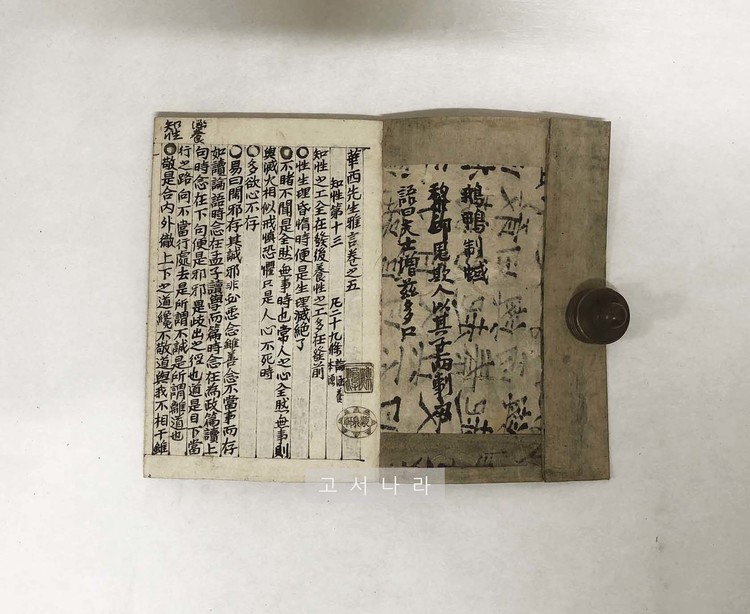 鵝鴨制
語曰夫士憎玆多口
華西先生雅言卷之五
知性第十三 凡二十九條
知性之工全在發後養性之工多在發前
性生理昏惰時便是生理滅絶了
○不睹不聞是全然無事時也常人之心全然無事則
與滅火相似戒愼恐懼只是人心不死時
○多欲心不存
○易曰閑邪存其誠邪非必惡念雖善念不當事而存
如讀論語時念在孟子讀學而篇時念在為政篇讀上
句時念在下句便是邪邪是歧出之徑也道是目下當
行之路向不當行處去是所謂不誠是所謂離道也
○敬是合內外徹上下之道纔不敬道與我不相干雖
知性
고서나라